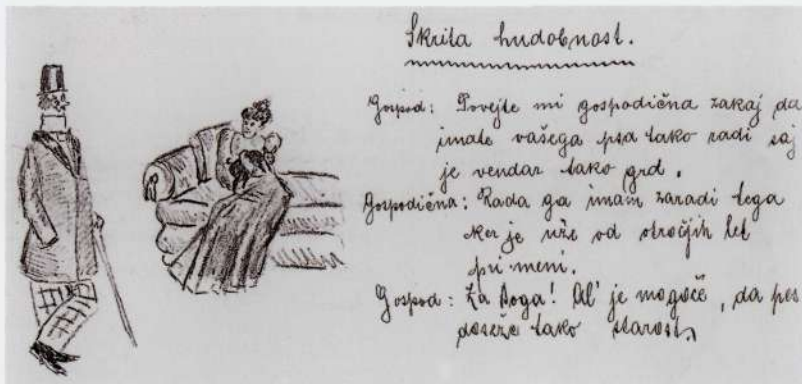 Skrita hudobnost.
Gospod: Povejte mi gospodična zakaj da
imate vašega psa tako radi saj
je vendar tako grd.
Gospodična: Rada ga imam zaradi tega
ker je uže od otročjih let
pri meni.
Gospod: Za Boga! Al' je mogoče, da pes
doseže tako starost,